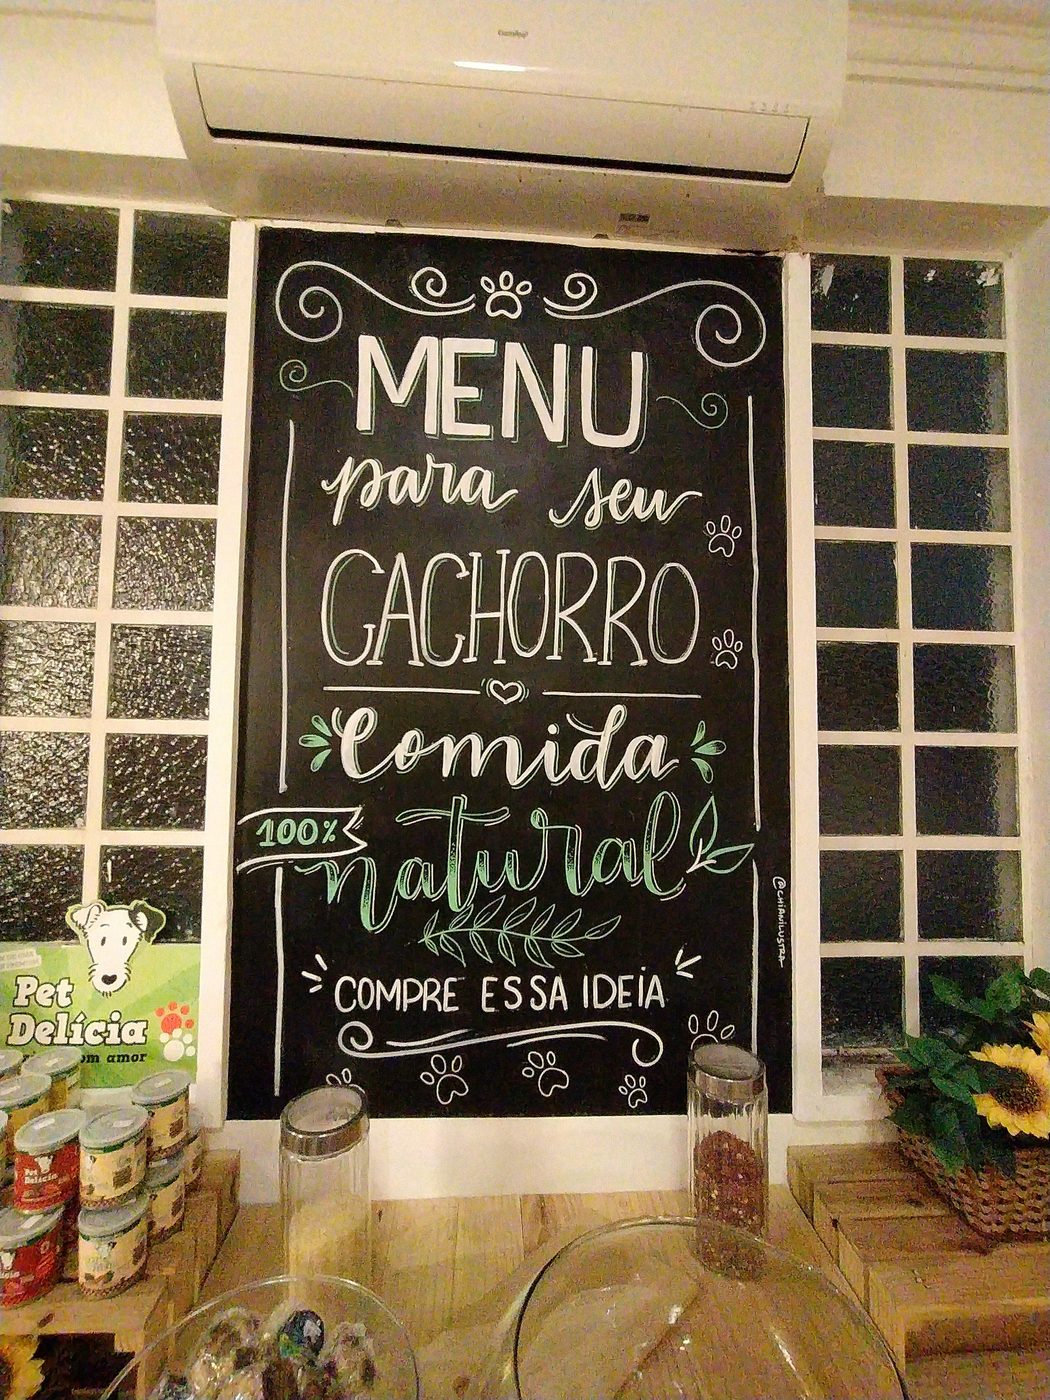 MENU
para seu
CACHORRO
Comida
100%
natural
COMPRE ESSA IDEIA
@CHIANILUSTRA
Pet
Delícia
com amor
Pet
Delícia